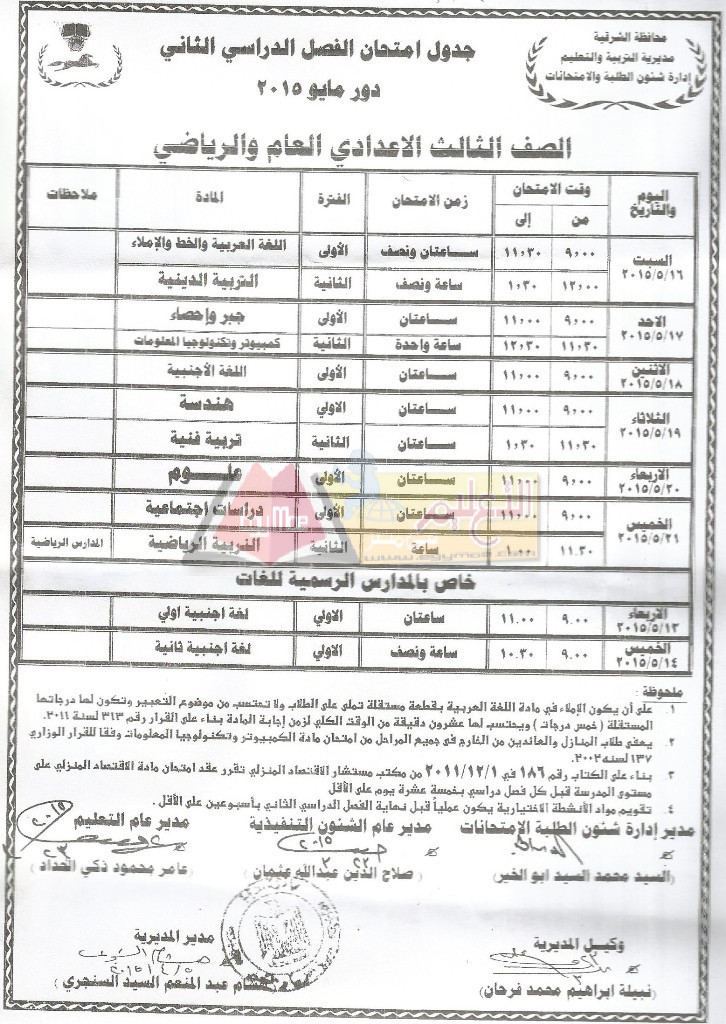 محافظة الشرقية
مديرية التربية والتعليم
إدارة شئون الطلبة والامتحانات
جدول امتحان الفصل الدراسي الثاني
دور مايو ٢٠١٥
الصف الثالث الاعدادي العام والرياضي
اليوم والتاريخ وقت الامتحان زمن الامتحان الفترة المادة ملاحظات
من إلى
السبت ٢٠١٥/٥/١٦ ٩,٠٠ ١١,٣٠ ساعتان ونصف الأولى اللغة العربية والخط والإملاء
١٢,٠٠ ١,٣٠ ساعة ونصف الثانية التربية الدينية
الاحد ٢٠١٥/٥/١٧ ٩,٠٠ ١١,٠٠ ساعتان الأولى جبر وإحصاء
١١,٣٠ ١٢,٣٠ ساعة واحدة الثانية كمبيوتر وتكنولوجيا المعلومات
الاثنين ٢٠١٥/٥/١٨ ٩,٠٠ ١١,٠٠ ساعتان الأولى اللغة الأجنبية
الثلاثاء ٢٠١٥/٥/١٩ ٩,٠٠ ١١,٠٠ ساعتان الاولي هندسة
١١,٣٠ ١,٣٠ ساعتان الثانية تربية فنية
الاربعاء ٢٠١٥/٥/٢٠ ٩,٠٠ ١١,٠٠ ساعتان الأولى علوم
الخميس ٢٠١٥/٥/٢١ ٩,٠٠ ١١,٠٠ ساعتان الأولى دراسات اجتماعية
١١.٣٠ ١,٠٠ ساعة الثانية التربية الرياضية المدارس الرياضية
خاص بالمدارس الرسمية للغات
الاربعاء ٢٠١٥/٥/١٣ ٩.٠٠ ١١.٠٠ ساعتان الاولي لغة اجنبية اولي
الخميس ٢٠١٥/٥/١٤ ٩.٠٠ ١٠.٣٠ ساعة ونصف الاولي لغة اجنبية ثانية
ملحوظة :
١. علي أن يكون الإملاء في مادة اللغة العربية بقطعة مستقلة تملي علي الطلاب ولا تحتسب من موضوع التعبير وتكون لها درجاتها
المستقلة ( خمس درجات ) ويحتسب لها عشرون دقيقة من الوقت الكلي لزمن إجابة المادة بناء علي القرار رقم ٣١٣ لسنة ٢٠١١.
٢. يعفي طلاب المنازل والعائدين من الخارج في جميع المراحل من امتحان مادة الكمبيوتر وتكنولوجيا المعلومات وفقا للقرار الوزاري
١٣٧ لسنه ٢٠٠٢.
٣. بناء علي الكتاب رقم ١٨٦ في ٢٠١١/١٢/١ من مكتب مستشار الاقتصاد المنزلي تقرر عقد امتحان مادة الاقتصاد المنزلي علي
مستوي المدرسة قبل كل فصل دراسي بخمسة عشرة يوم علي الأقل
٤. تقويم مواد الأنشطة الاختيارية يكون عملياً قبل نهاية الفصل الدراسي الثاني بأسبوعين علي الأقل.
مدير إدارة شئون الطلبة الإمتحانات مدير عام الشئون التنفيذية مدير عام التعليم
(السيد محمد السيد ابو الخير) ( صلاح الدين عبدالله عثمان ) ( عامر محمود ذكي الحداد )
وكيل المديرية مدير المديرية
نبيلة ابراهيم محمد فرحان هشام عبد المنعم السيد السنجري )